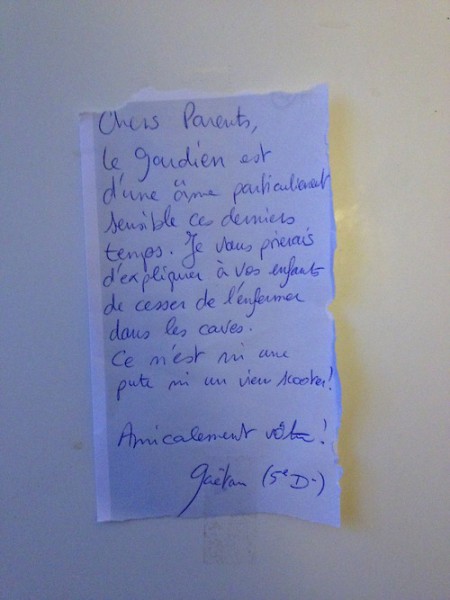 Chers Parents,
le gardien est
d'une âme particulièrement
sensible ces derniers
temps. Je vous prierais
d'expliquer à vos enfants
de cesser de l'enfermer
dans les caves.
Ce n'est ni une
pute ni un vieux scooter!
Amicalement vôtre!
Gaëtan (5e D.)